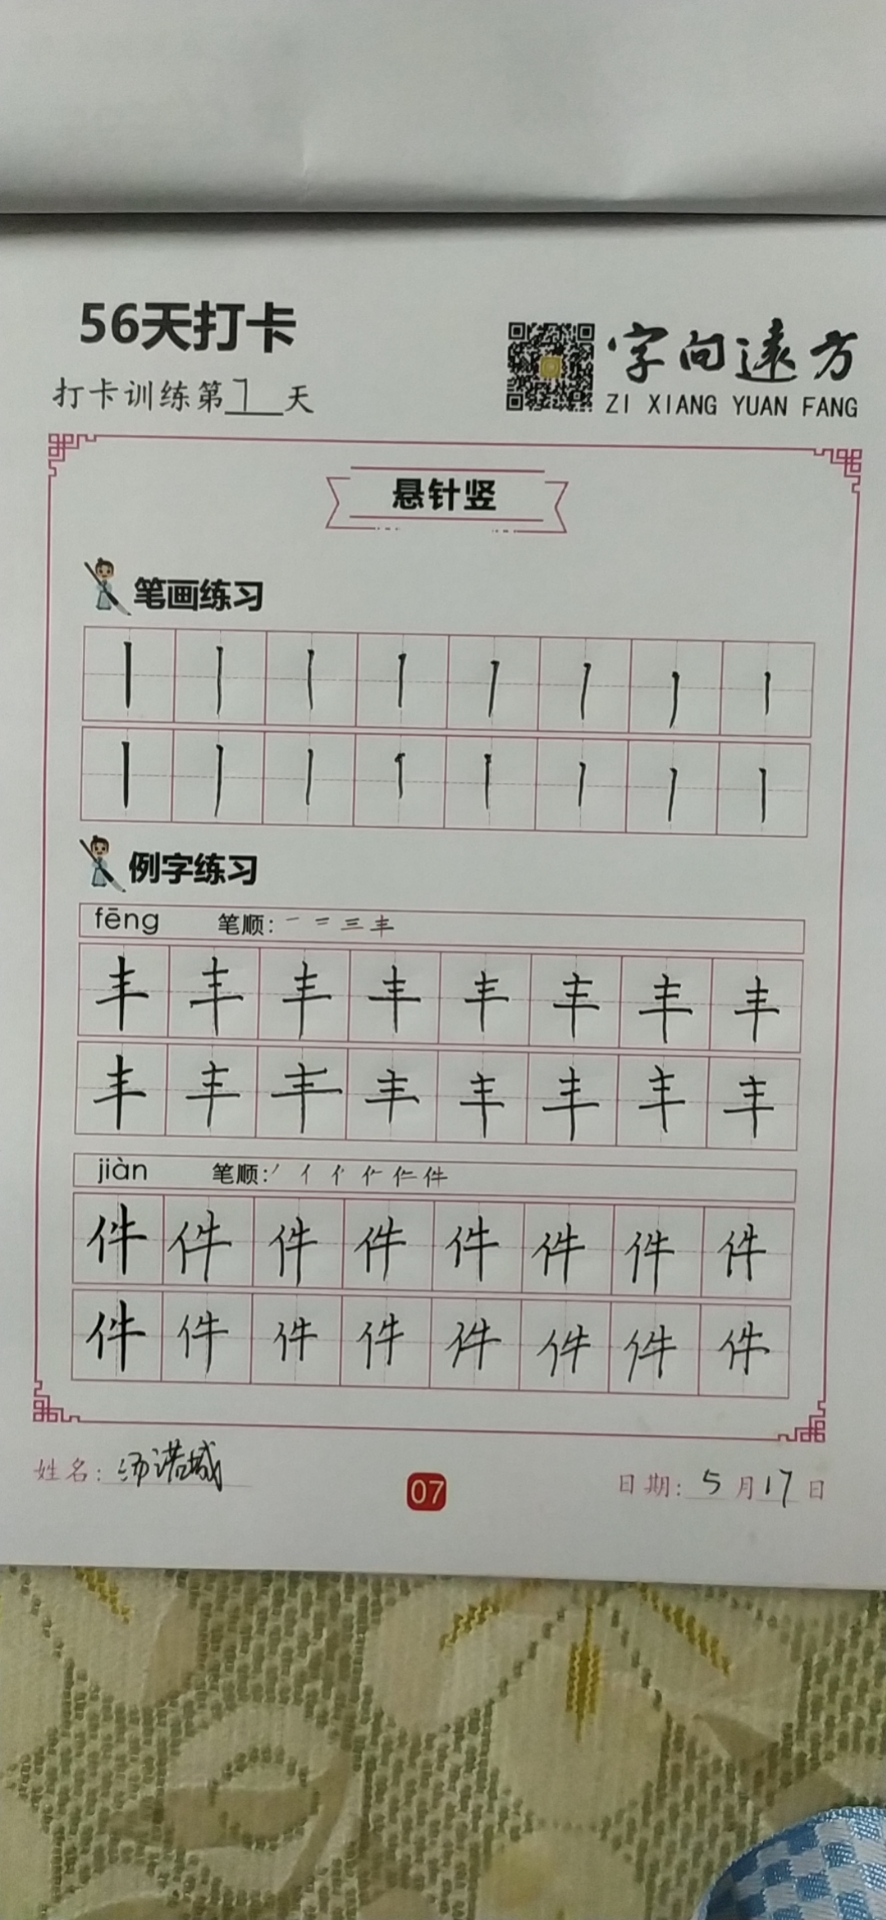 56天打卡
打卡训练第7天
字向遠方
ZI XIANG YUAN FANG
悬针竖
笔画练习
丨丨丨丨丨丨丨丨
丨丨丨丨丨丨丨丨
例字练习
fēng 笔顺: 一 二 三 丰
丰丰丰丰丰丰丰丰
丰丰丰丰丰丰丰丰
jiàn 笔顺: 件
件件件件件件件件
件件件件件件件件
姓名: 诺城
07
日期: 5月17日